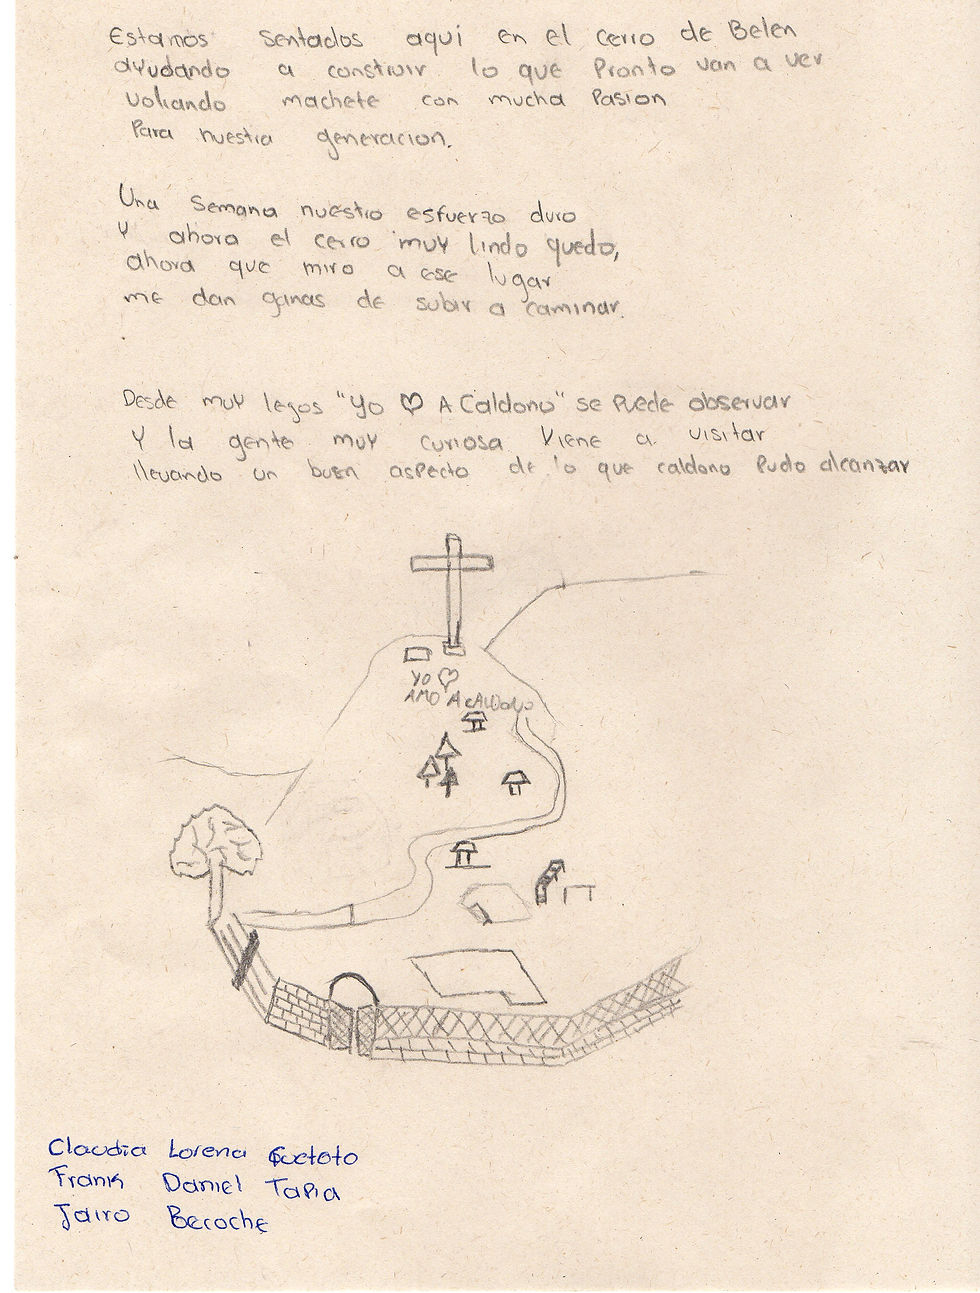 Estamos sentados aqui en el cerro de Belen
ayudando a construir lo que Pronto van a ver
voliando machete con mucha Pasion
Para nuestra generacion.
Una semana nuestro esfuerzo duro
Y ahora el cerro muy lindo quedo,
ahora que miro a ese lugar
me dan ganas de subir a caminar.
Desde muy legos "Yo ♡ A Caldono" se puede observar
Y la gente muy curiosa Viene a visitar
llevando un buen aspecto de lo que caldono Pudo alcanzar
YO ♡
AMO A CALDONO
Claudia Lorena
Frank Daniel Tapia
Jairo Becoche